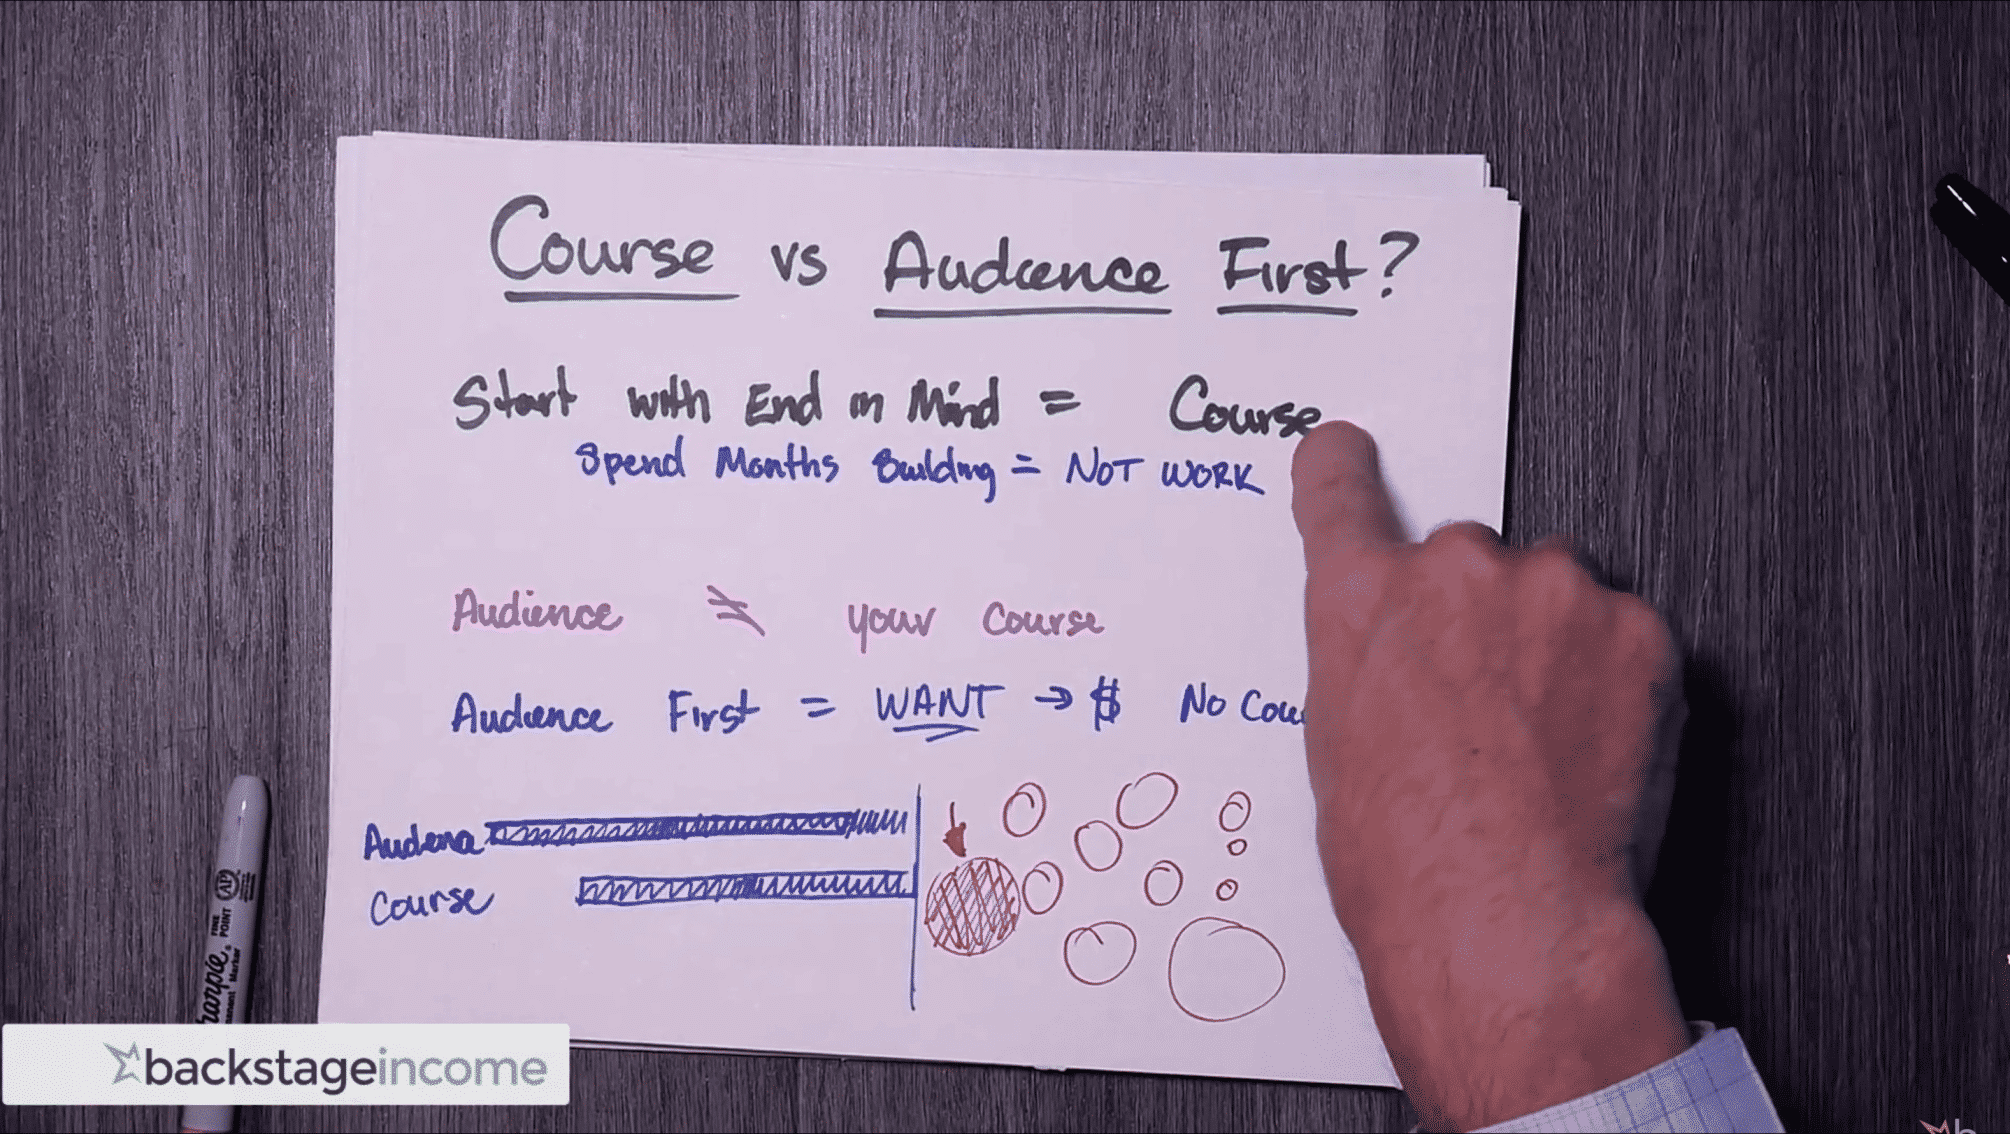 Course vs Audience First?
Start with End in Mind = Course
Spend Months Building = NOT WORK
Audience ≠ your course
Audience First = WANT → $ No Cou
Audience
course
Sharpie
FINE POINT
Permanent Marker
AP
backstageincome
b